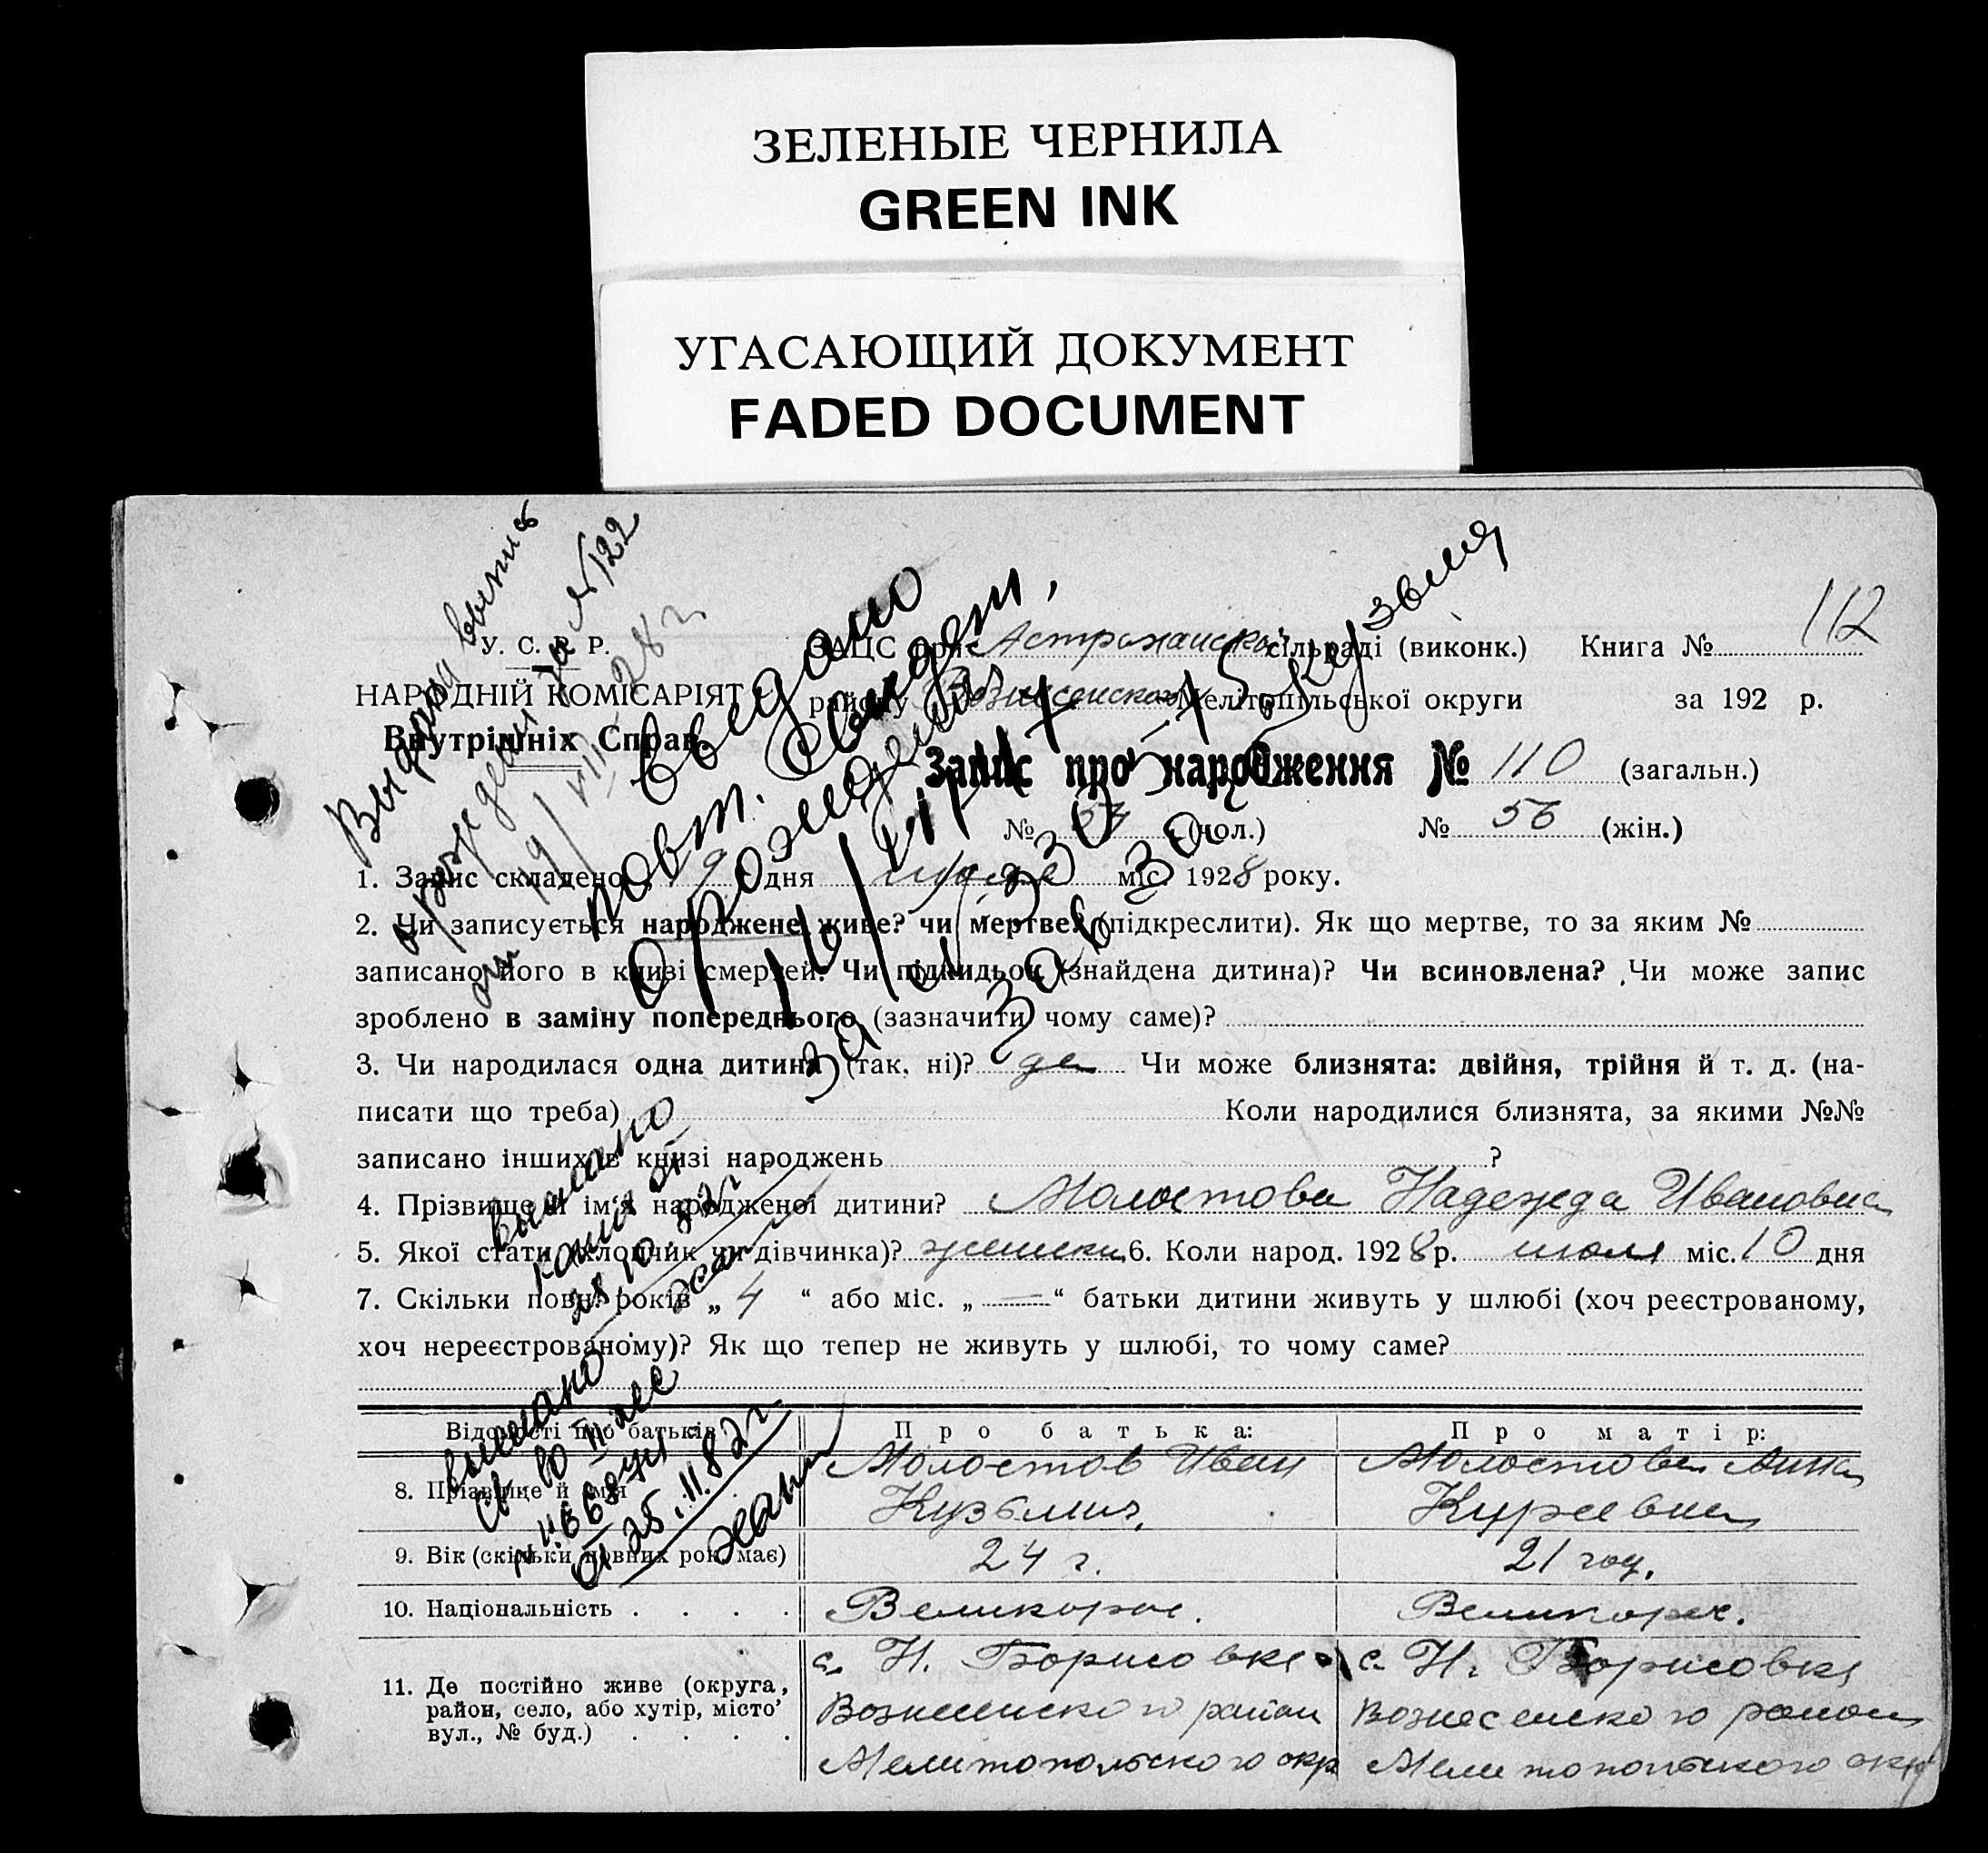 ЗЕЛЕНЫЕ ЧЕРНИЛА
GREEN INK
УГАСАЮЩИЙ ДОКУМЕНТ
FADED DOCUMENT
112
У. С. Р. Р.
НАРОДНІЙ КОМІСАРІЯТ
Внутрішніх Справ
ЗАЦС при Астраханской сільраді (виконк.) Книга №
району Вознесенского Мелітопільської округи за 192 р.
Запис про народження № 110 (загальн.)
№ 54 (чол.) № 56 (жін.)
1. Запис складено „ 19 " дня июля міс. 1928 року.
2. Чи записується народжене живе? чи мертве? (підкреслити). Як що мертве, то за яким №
записано його в книзі смертей. Чи підкидьок (знайдена дитина)? Чи всиновлена? Чи може запис
зроблено в заміну попереднього (зазначити чому саме)?
3. Чи народилася одна дитина (так, ні)? да Чи може близнята: двійня, трійня й т. д. (на-
писати що треба) Коли народилися близнята, за якими №№
записано інших в книзі народжень ?
4. Прізвище й ім'я народженої дитини? Молостова Надежда Ивановна
5. Якої стати (хлопчик чи дівчинка)? 6. Коли народ. 1928 р. июля міс. 10 дня
7. Скільки повн. років „ 4 “ або міс. „ — “ батьки дитини живуть у шлюбі (хоч реєстрованому,
хоч нереєстрованому)? Як що тепер не живуть у шлюбі, то чому саме?
Відомості про батьків Про батька: Про матір:
8. Прізвище й ім'я Молостов Иван Кузьмич. Молостова Анна
9. Вік (скільки повних рок. має) 24 г. 21 год.
10. Національність . . . . Великорос. Великорос.
11. Де постійно живе (округа,
район, село, або хутір, місто
вул., № буд.) . . . .
с. Н. Борисовка
Вознесенского район
Мелитопольского окр
с. Н. Борисовка
Вознесенского район
Мелитопольского окр
Выдана выпись
о рождении за №122
от 19/VII-28 г
выдано
повт. свидет.
о рождении
выслано
28 10 82 г
выслано
25.11.82 г